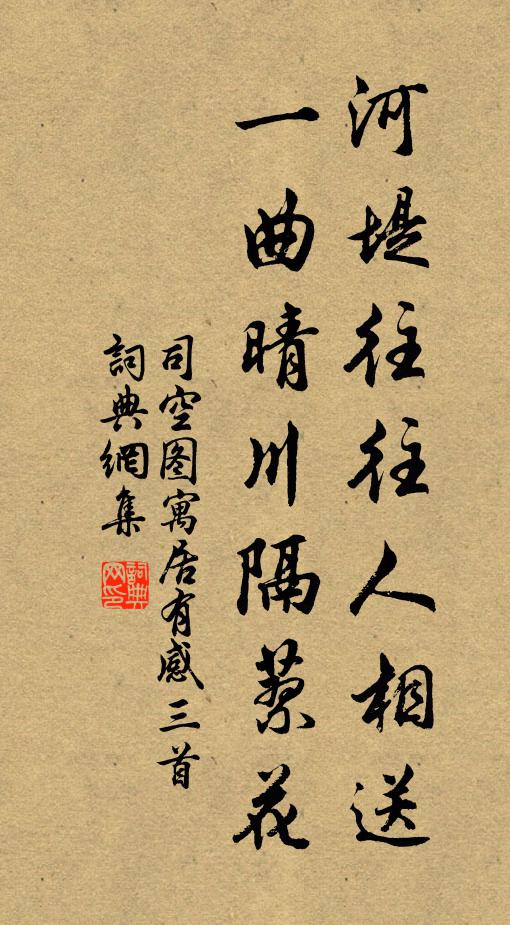 河堤往往人相送
一曲晴川隔蓼花
司空图寓居有感三首
詞典網集
詞典网印